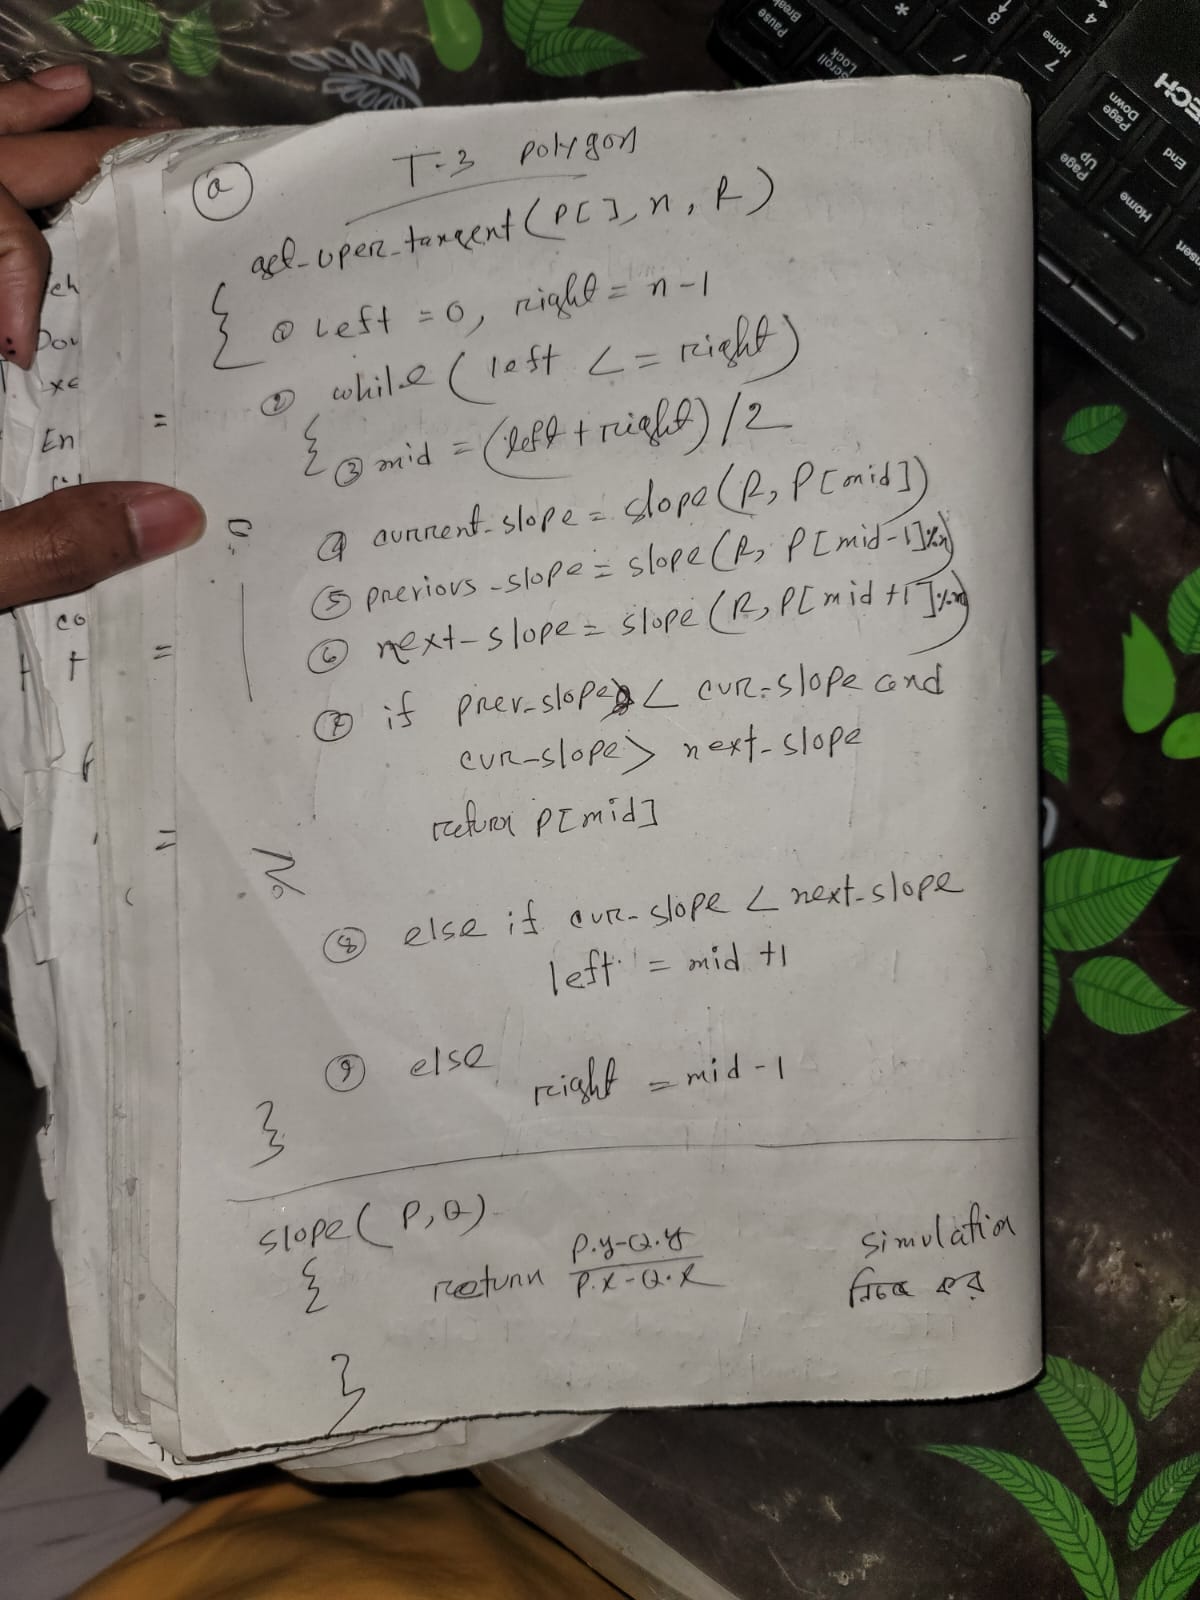 a
T-3 polygon
get_uper_tangent(P[], n, R)
{
① Left = 0, right = n-1
② while (left <= right)
{
③ mid = (left + right) /2
④ current-slope = slope(R, P[mid])
⑤ previous-slope = slope(R, P[mid-1]%n)
⑥ next-slope = slope(R, P[mid+1]%n)
⑦ if prev-slope < cur-slope and
cur-slope > next-slope
return P[mid]
⑧ else if cur-slope < next-slope
left = mid +1
⑨ else
right = mid -1
}
slope(P,Q)
{
return P.y-Q.y
P.x-Q.x
}
simulation
নিজে কর
Pause
Break
Scroll
Lock
*
/
8
7
Home
4
Page
Down
Page
Up
End
Home
ECH
En
co